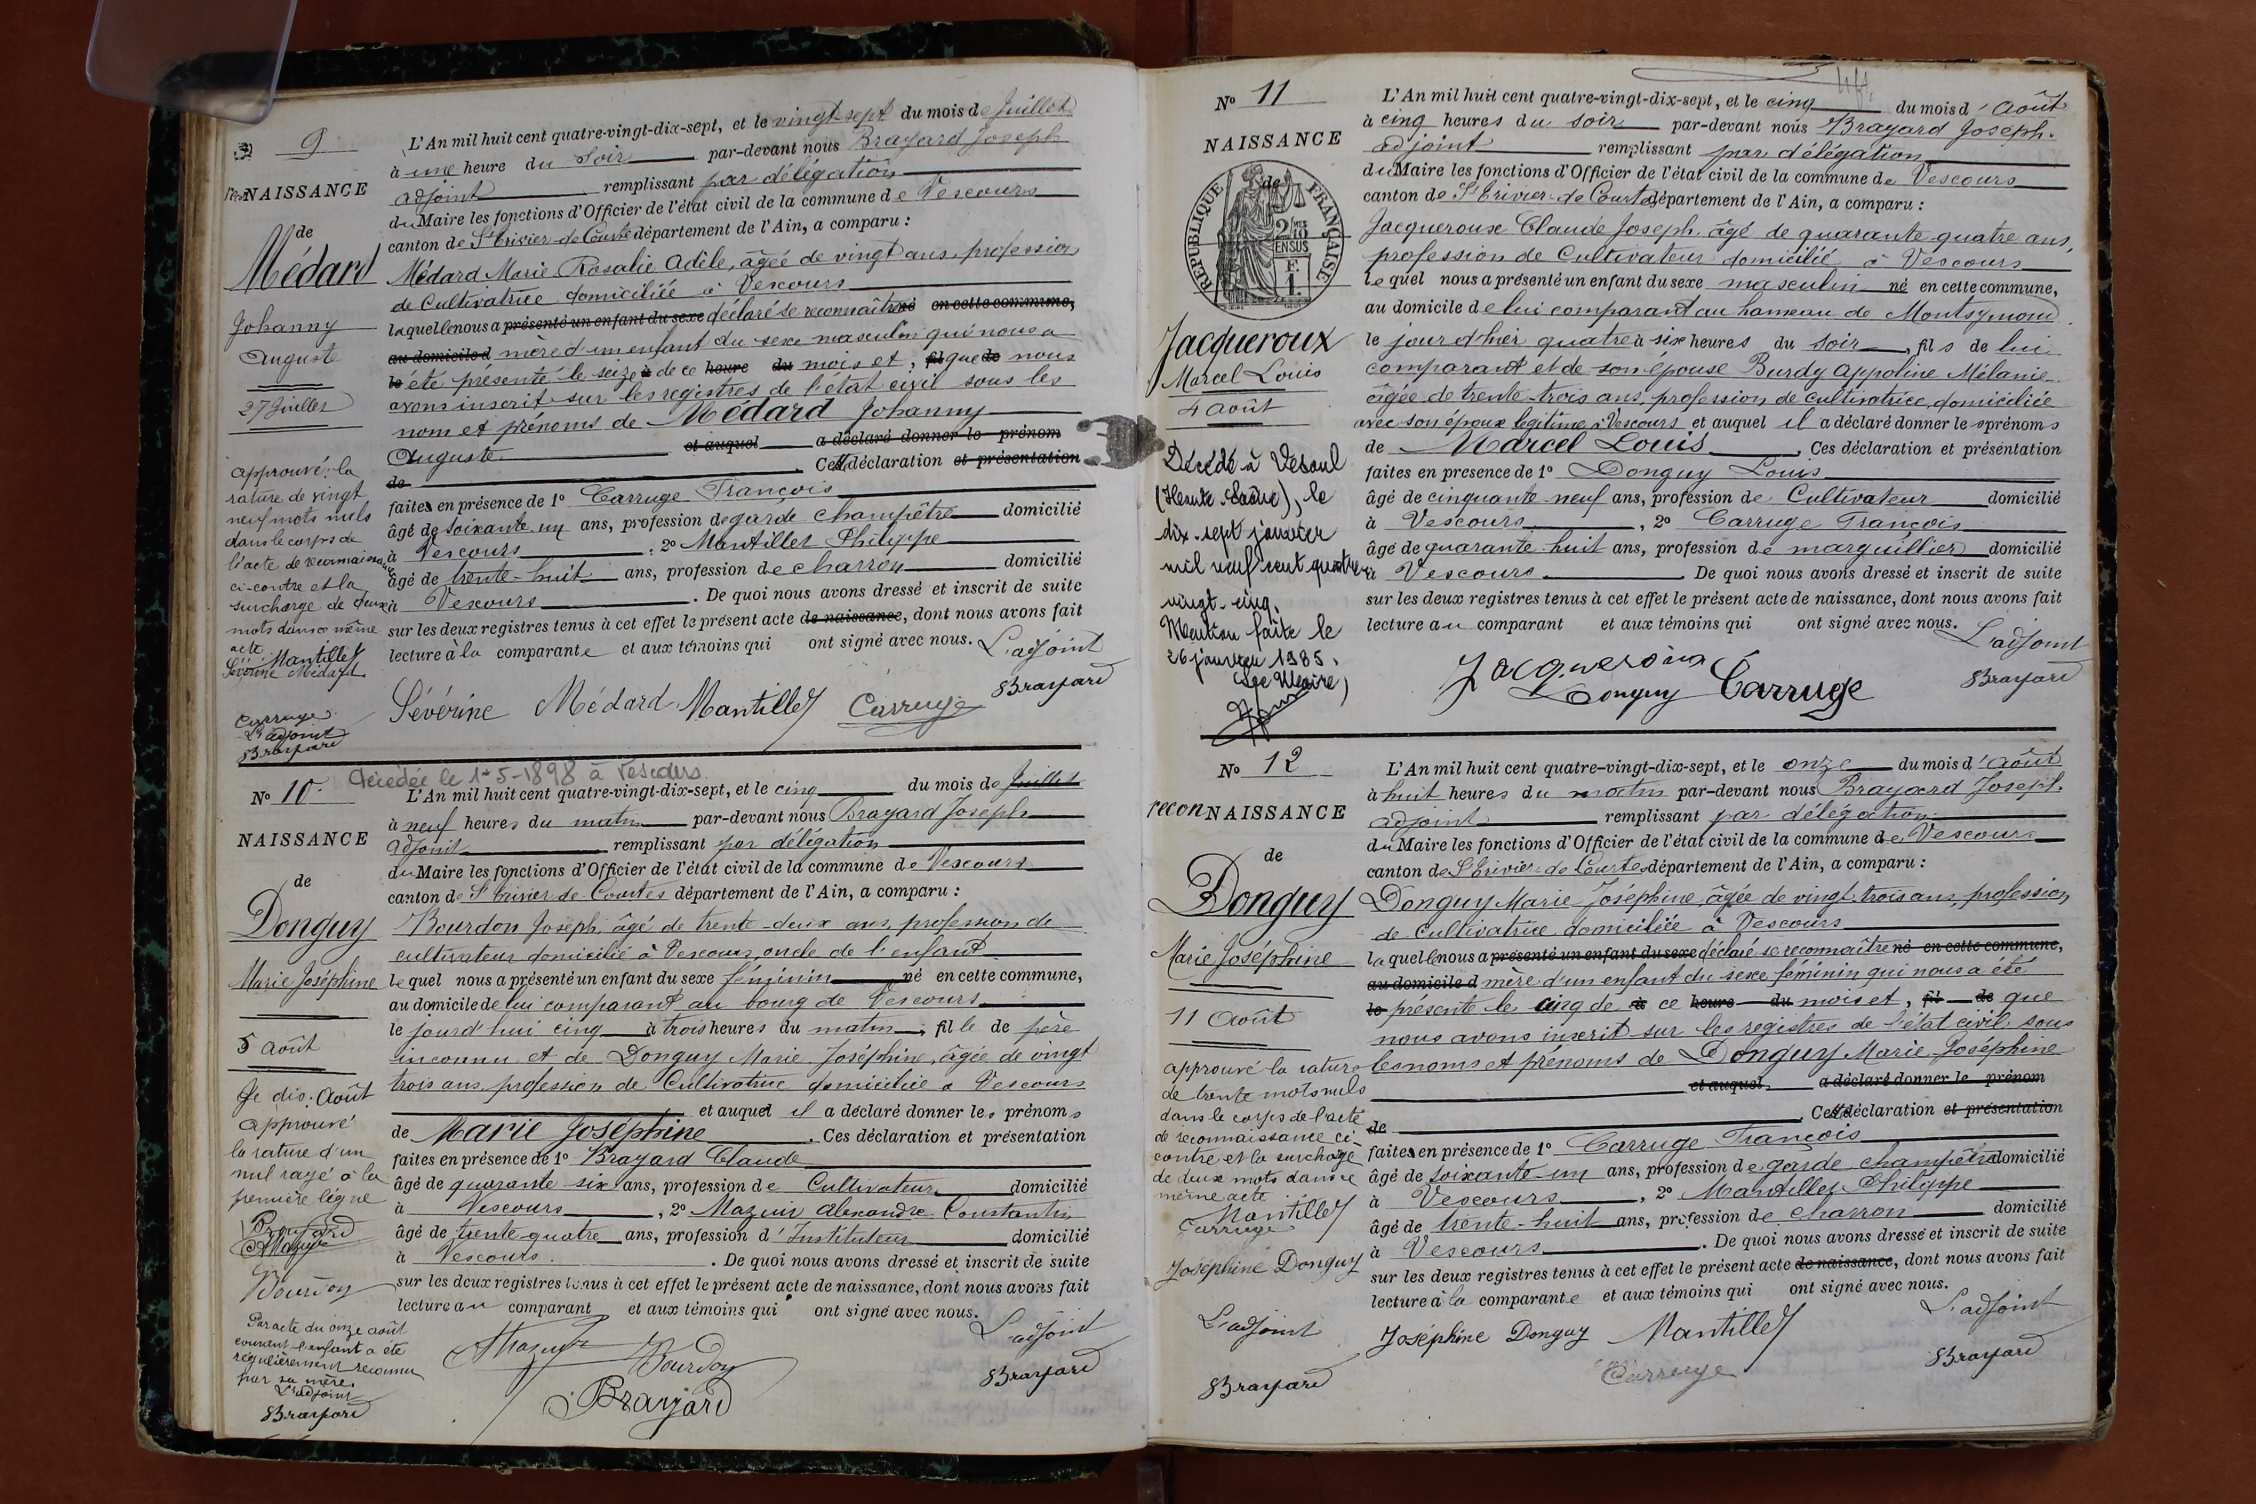 N° 9
reconNAISSANCE
de
Médard
Johanny
Auguste
27 Juillet
approuvé la
rature de vingt
neuf mots nuls
dans le corps de
l'acte de reconnaissance
ci-contre et la
surcharge de deux
mots dans ce même
acte
Mantillet
Séverine Médard
Carruge
L'adjoint
Brayard
L'An mil huit cent quatre-vingt-dix-sept, et le vingt-sept du mois de Juillet
à une heure du soir par-devant nous Brayard Joseph
adjoint remplissant par délégation
du Maire les fonctions d'Officier de l'état civil de la commune de Vescours
canton de St Trivier-de-Courtes département de l'Ain, a comparu :
Médard Marie Rosalie Adèle, âgée de vingt ans, profession
de Cultivatrice domiciliée à Vescours
laquelle nous a présenté un enfant du sexe déclaré se reconnaître né en cette commune,
au domicile d mère d'un enfant du sexe masculin qui nous a
le été présenté le seize à de ce heure du mois et, fil que de nous
avons inscrit sur les registres de l'état civil sous les
nom et prénoms de Médard Johanny
Auguste et auquel a déclaré donner le prénom
de Cette déclaration et présentation
faites en présence de 1° Carruge François
âgé de soixante un ans, profession de garde champêtre domicilié
à Vescours, 2° Mantillet Philippe
âgé de trente-huit ans, profession de charron domicilié
à Vescours. De quoi nous avons dressé et inscrit de suite
sur les deux registres tenus à cet effet le présent acte de naissance, dont nous avons fait
lecture à la comparante et aux témoins qui ont signé avec nous. L'adjoint
Séverine Médard Mantillet Carruge Brayard
Décédée le 1-5-1898 à Vescours
N° 10
NAISSANCE
de
Donguy
Marie Joséphine
5 août
Je dis : Août
approuvé
la rature d'un
nul rayé à la
première ligne
Brayard
AMazuir
Bourdon
Par acte du onze août
courant l'enfant a été
régulièrement reconnu
par sa mère.
L'adjoint
Brayard
L'An mil huit cent quatre-vingt-dix-sept, et le cinq du mois de Juillet
à neuf heures du matin par-devant nous Brayard Joseph
adjoint remplissant par délégation
du Maire les fonctions d'Officier de l'état civil de la commune de Vescours
canton de St Trivier-de-Courtes département de l'Ain, a comparu :
Bourdon Joseph, âgé de trente-deux ans, profession de
cultivateur domicilié à Vescours, oncle de l'enfant
lequel nous a présenté un enfant du sexe féminin né en cette commune,
au domicile de lui comparant au bourg de Vescours
le jourd'hui cinq à trois heures du matin, fille de père
inconnu et de Donguy Marie Joséphine, âgée de vingt
trois ans, profession de Cultivatrice domiciliée à Vescours
et auquel il a déclaré donner les prénoms
de Marie Joséphine. Ces déclaration et présentation
faites en présence de 1° Brayard Claude
âgé de quarante-six ans, profession de Cultivateur domicilié
à Vescours, 2° Mazuir Alexandre Constantin
âgé de trente-quatre ans, profession d'Instituteur domicilié
à Vescours. De quoi nous avons dressé et inscrit de suite
sur les deux registres tenus à cet effet le présent acte de naissance, dont nous avons fait
lecture au comparant et aux témoins qui ont signé avec nous. L'adjoint
AMazuir Bourdon Brayard
Brayard
N° 11
NAISSANCE
de
RÉPUBLIQUE FRANÇAISE
2/10 MES
EN SUS
F.
1.
Jacqueroux
Marcel Louis
4 août
Décédé à Vesoul
(Haute-Saône), le
dix-sept janvier
mil neuf cent quatre
vingt-cinq.
Mention faite le
26 janvier 1985.
Le Maire,
L'An mil huit cent quatre-vingt-dix-sept, et le cinq du mois d'Août
à cinq heures du soir par-devant nous Brayard Joseph.
adjoint remplissant par délégation
du Maire les fonctions d'Officier de l'état civil de la commune de Vescours
canton de St Trivier-de-Courtes département de l'Ain, a comparu :
Jacqueroux Claude Joseph âgé de quarante-quatre ans,
profession de Cultivateur domicilié à Vescours
lequel nous a présenté un enfant du sexe masculin né en cette commune,
au domicile de lui comparant au hameau de Montsymond
le jour d'hier quatre à six heures du soir, fils de lui
comparant et de son épouse Burdy Appoline Mélanie
âgée de trente-trois ans, profession de cultivatrice, domiciliée
avec son époux légitime à Vescours et auquel il a déclaré donner les prénoms
de Marcel Louis. Ces déclaration et présentation
faites en presence de 1° Donguy Louis
âgé de cinquante neuf ans, profession de Cultivateur domicilié
à Vescours, 2° Carruge François
âgé de quarante huit ans, profession de marguillier domicilié
à Vescours. De quoi nous avons dressé et inscrit de suite
sur les deux registres tenus à cet effet le présent acte de naissance, dont nous avons fait
lecture au comparant et aux témoins qui ont signé avec nous. L'adjoint
Jacqueroux Donguy Carruge Brayard
N° 12
reconNAISSANCE
de
Donguy
Marie Joséphine
11 Août
approuvé la rature
de trente mots nuls
dans le corps de l'acte
de reconnaissance ci-
contre et la surcharge
de deux mots dans ce
même acte
Mantillet
Carruge
Joséphine Donguy
L'adjoint
Brayard
L'An mil huit cent quatre-vingt-dix-sept, et le onze du mois d'Août
à huit heures du matin par-devant nous Brayard Joseph.
adjoint remplissant par délégation
du Maire les fonctions d'Officier de l'état civil de la commune de Vescours
canton de St Trivier-de-Courtes département de l'Ain, a comparu :
Donguy Marie Joséphine, âgée de vingt-trois ans, profession
de Cultivatrice, domiciliée à Vescours
laquelle nous a présenté un enfant du sexe déclaré se reconnaître né en cette commune,
au domicile d mère d'un enfant du sexe féminin qui nous a été
le présenté le cinq de à ce heure du mois et, fil de que
nous avons inscrit sur les registres de l'état civil sous
les noms et prénoms de Donguy Marie Joséphine
et auquel a déclaré donner le prénom
de Cette déclaration et présentation
faites en présence de 1° Carruge François
âgé de soixante-un ans, profession de garde champêtre domicilié
à Vescours, 2° Mantillet Philippe
âgé de trente-huit ans, profession de charron domicilié
à Vescours. De quoi nous avons dressé et inscrit de suite
sur les deux registres tenus à cet effet le présent acte de naissance, dont nous avons fait
lecture à la comparante et aux témoins qui ont signé avec nous. L'adjoint
Joséphine Donguy Mantillet Carruge Brayard